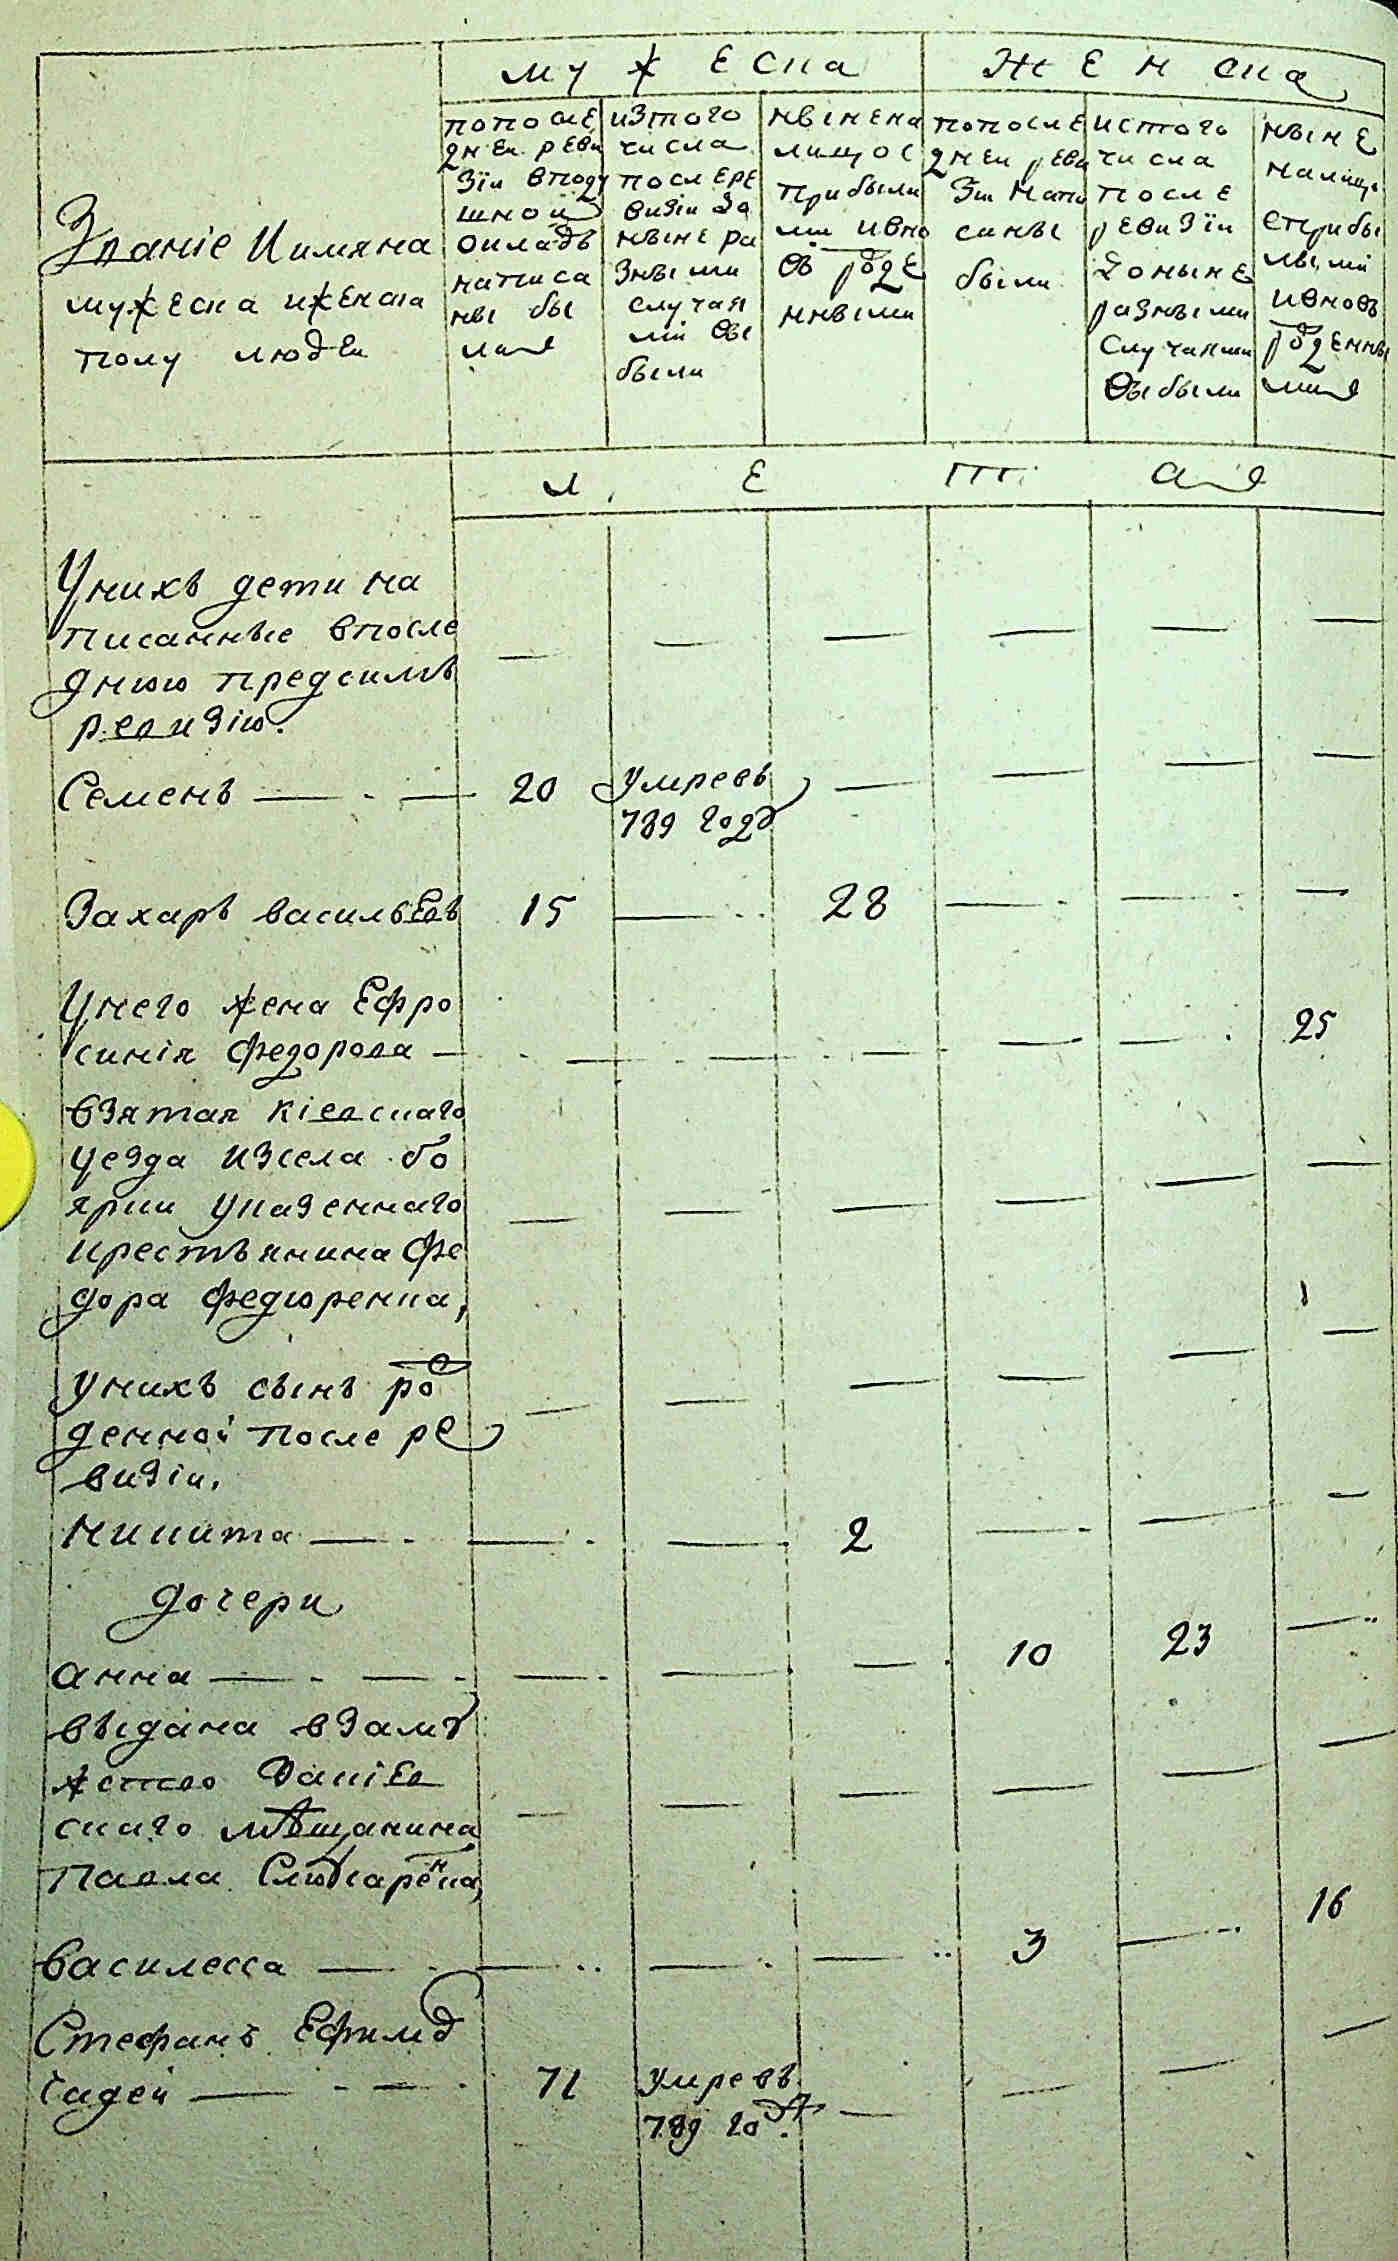 мужеска
женска
Званіе Иимяна
мужеска иженска
полу людеи
попосле
днеи реви
зіи вподу
шной
окладъ
написа
ны бы
ли
изтого
числа
послере
визіи до
ныне ра
зными
случая
ми вы
были
нынена
лицо с
прибыли
ми ивно
въ роде
нными
попосле
днеи реви
зіи напи
санны
были
истого
числа
после
ревизіи
доныне
разными
случаями
выбыли
ныне
налице
сприбы
лыми
ивновь
роденны
ми
лета
Унихъ дети на
писанные впосле
днюю предсимъ
ревизію.
Семенъ 20 умревъ
789 годъ
Захаръ васильевъ 15 28
Унего жена Ефро
синія Федорова 25
взятая кіевскаго
уезда изсела бо
ярки указеннаго
крестьянина Фе
дора Федоренка,
1
унихъ сынъ ро
денной после ре
визіи.
Никита 2
дочери
анна 10 23
выдана взаму
жство
скаго мѣщанина
Павла Слюсаренка,
Василесса 3 16
Стефанъ Ефимов
71 умревъ
789 год.